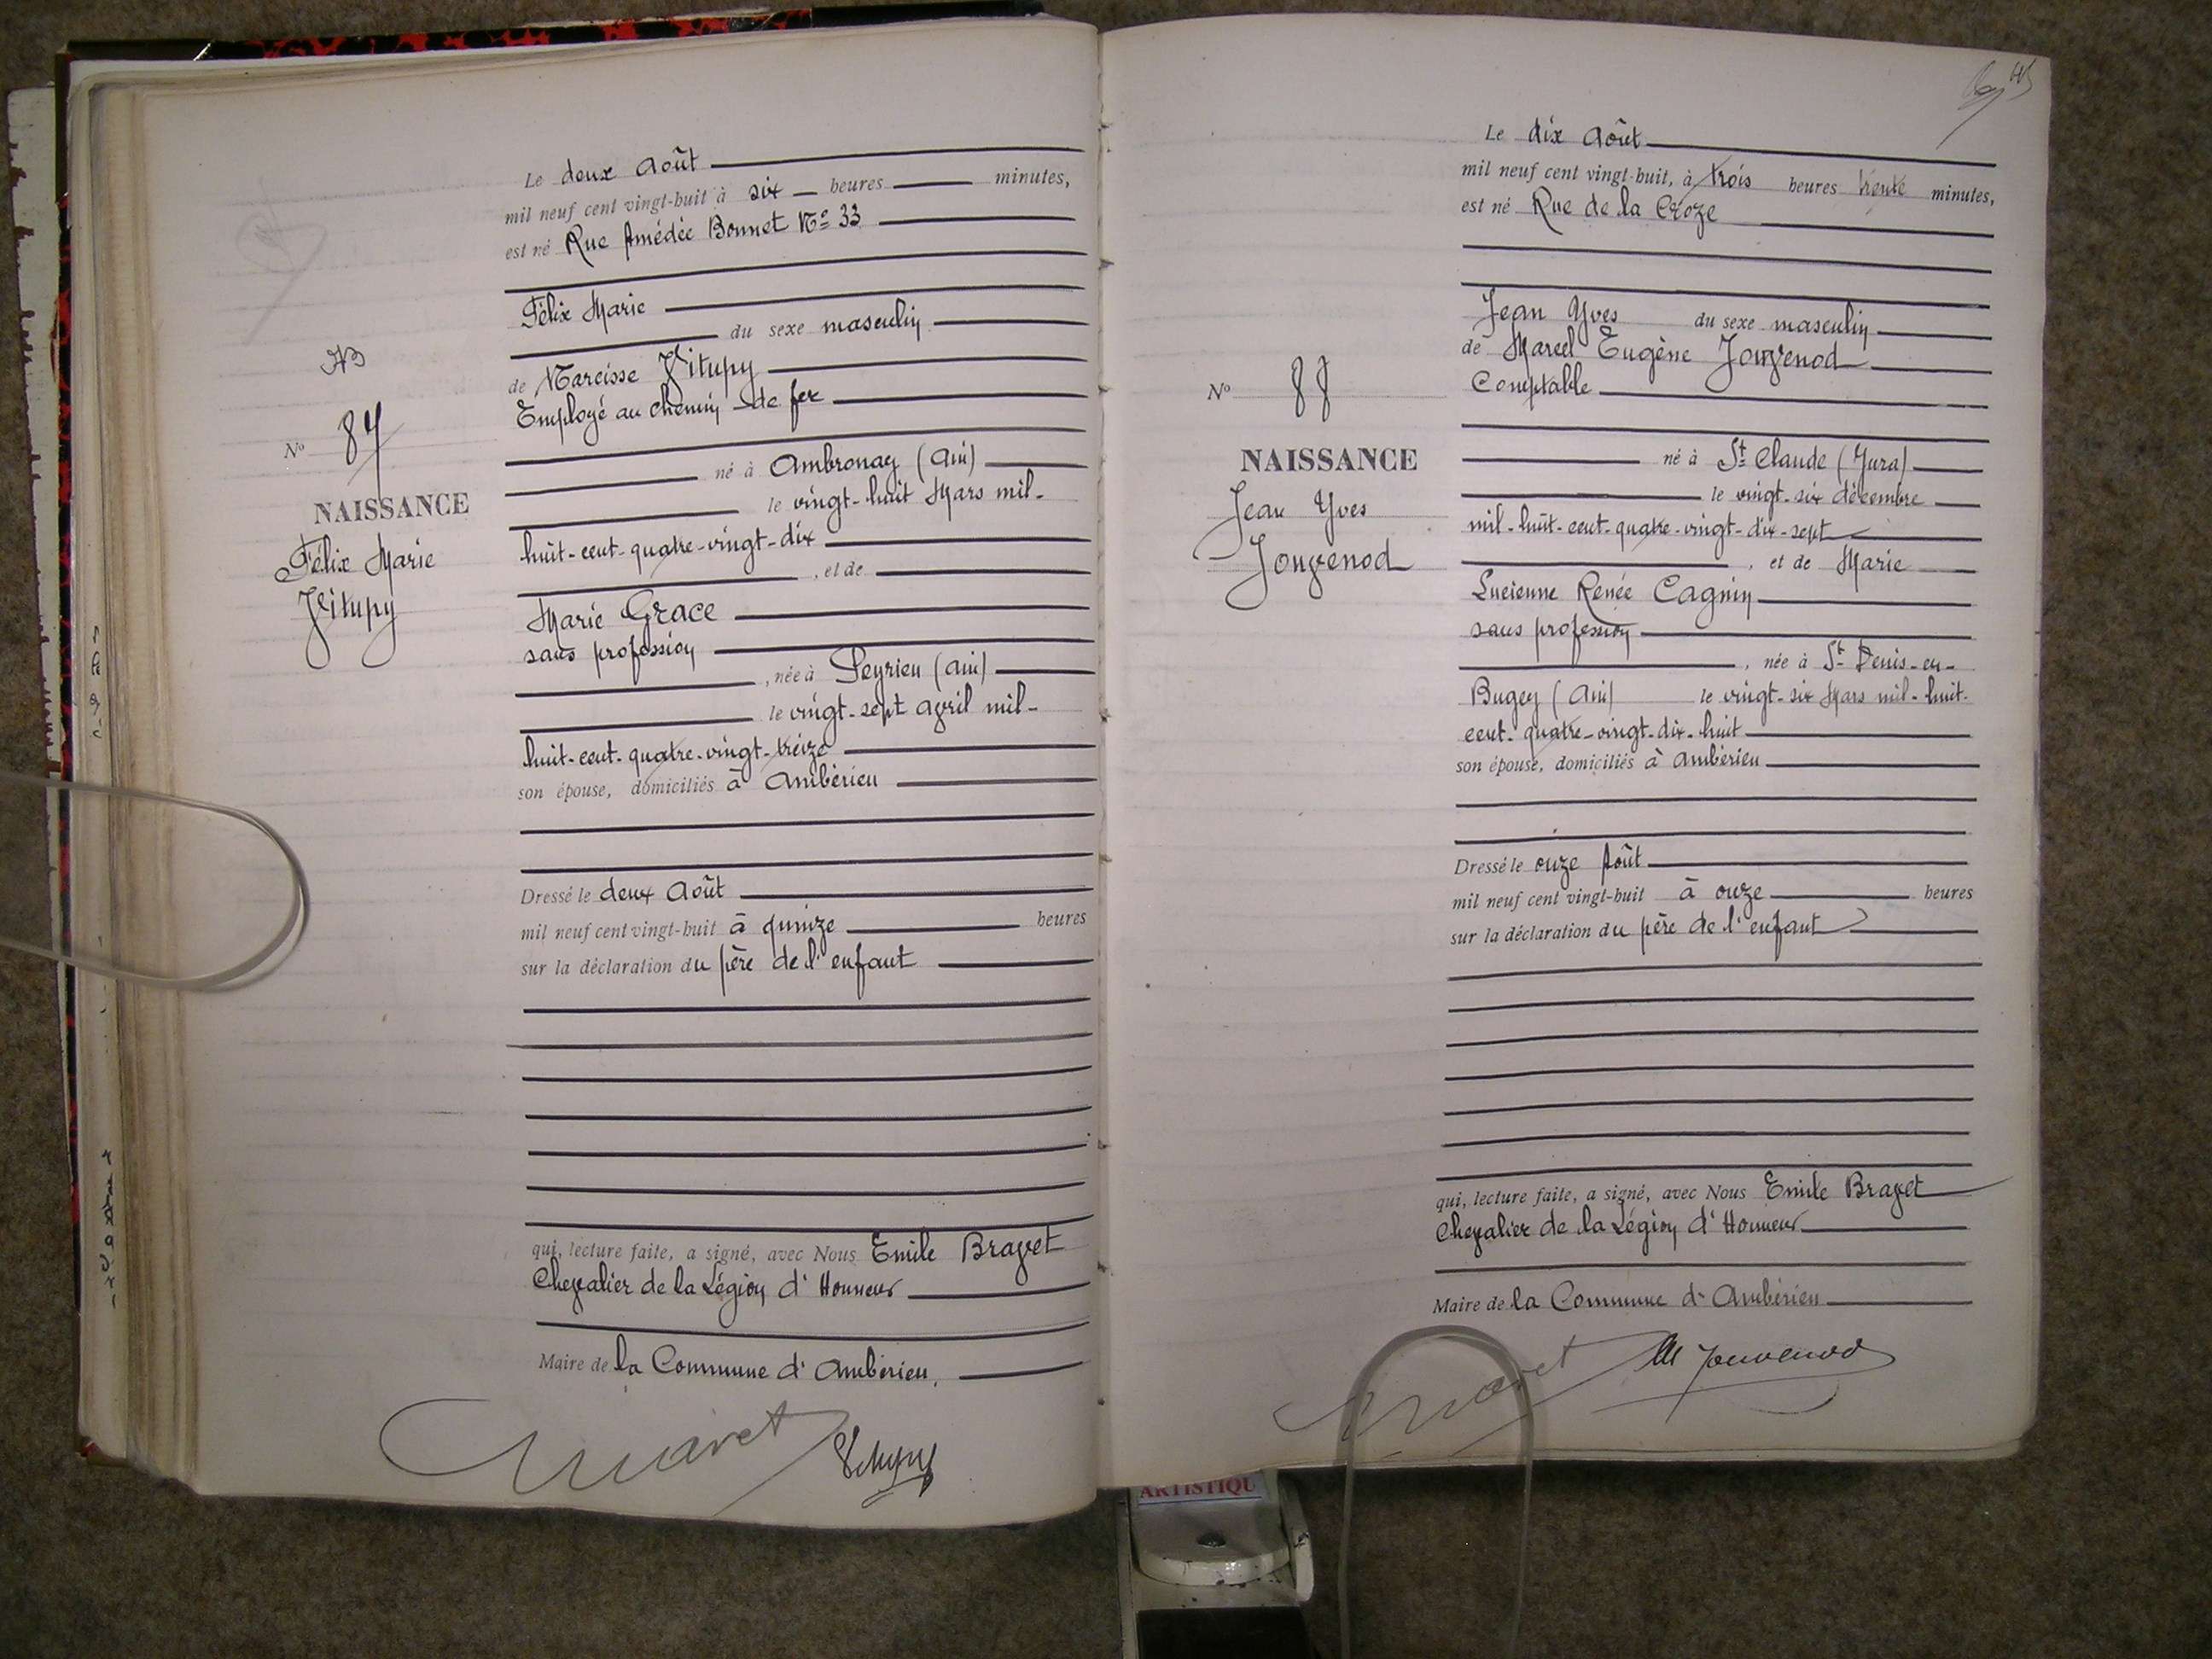 Le deux Août
mil neuf cent vingt-huit à six heures minutes,
est né Rue Amédée Bonnet N° 33
Félix Marie
du sexe masculin
de Narcisse Vitupy
Employé au chemin de fer
né à Ambronay (Ain)
le vingt-huit Mars mil-
huit-cent-quatre-vingt-dix
, et de
Marie Grace
sans profession
, née à Leyrieu (Ain)
le vingt-sept avril mil-
huit-cent-quatre-vingt-treize
son épouse, domiciliés à Ambérieu
Dressé le deux Août
mil neuf cent vingt-huit à quinze heures
sur la déclaration du père de l'enfant
qui, lecture faite, a signé, avec Nous Emile Bravet
Chevalier de la Légion d'Honneur
Maire de la Commune d'Ambérieu.
N° 87
NAISSANCE
Félix Marie
Vitupy
Le dix Août
mil neuf cent vingt-huit, à trois heures trente minutes,
est né Rue de la Croze
Jean Yves du sexe masculin
de Marcel Eugène Jouvenod
Comptable
né à St Claude (Jura)
le vingt-six décembre
mil-huit-cent-quatre-vingt-dix-sept
, et de Marie
Lucienne Renée Cagnin
sans profession
, née à St Denis-en-
Bugey (Ain) le vingt-six Mars mil-huit-
cent-quatre-vingt-dix-huit
son épouse, domiciliés à Ambérieu
Dressé le onze Août
mil neuf cent vingt-huit à onze heures
sur la déclaration du père de l'enfant
qui, lecture faite, a signé, avec Nous Emile Bravet
Chevalier de la Légion d'Honneur
Maire de la Commune d'Ambérieu
M Jouvenod
N° 88
NAISSANCE
Jean Yves
Jouvenod
ARTISTIQU